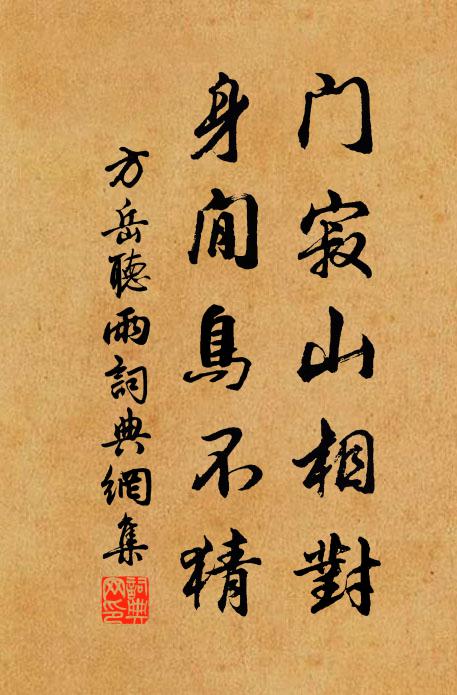 门寂山相對
身閒鳥不猜
方岳聽雨詞典網集
詞典網印